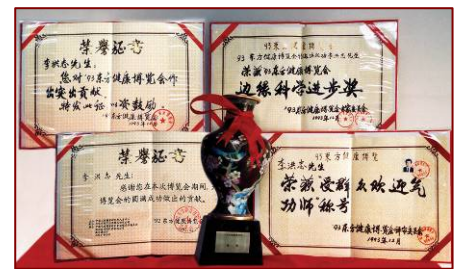 荣誉证书
李洪志先生:
您对'93东方健康博览会作
出突出贡献,
特发此证 以资鼓励。
'93东方健康博览会
1993年12月
李洪志先生
荣获'93东方健康博览会
边缘科学进步奖
'93东方健康博览会
1993年12月
荣誉证书
李洪志先生:
感谢您在本次博览会期间,
博览会的圆满成功做出的贡献。
'93东方健康博览会
'93东方健康博览
李洪志先生
荣获受群众欢迎气
功师称号
'93东方健康博览会评审委员会
1993年12月